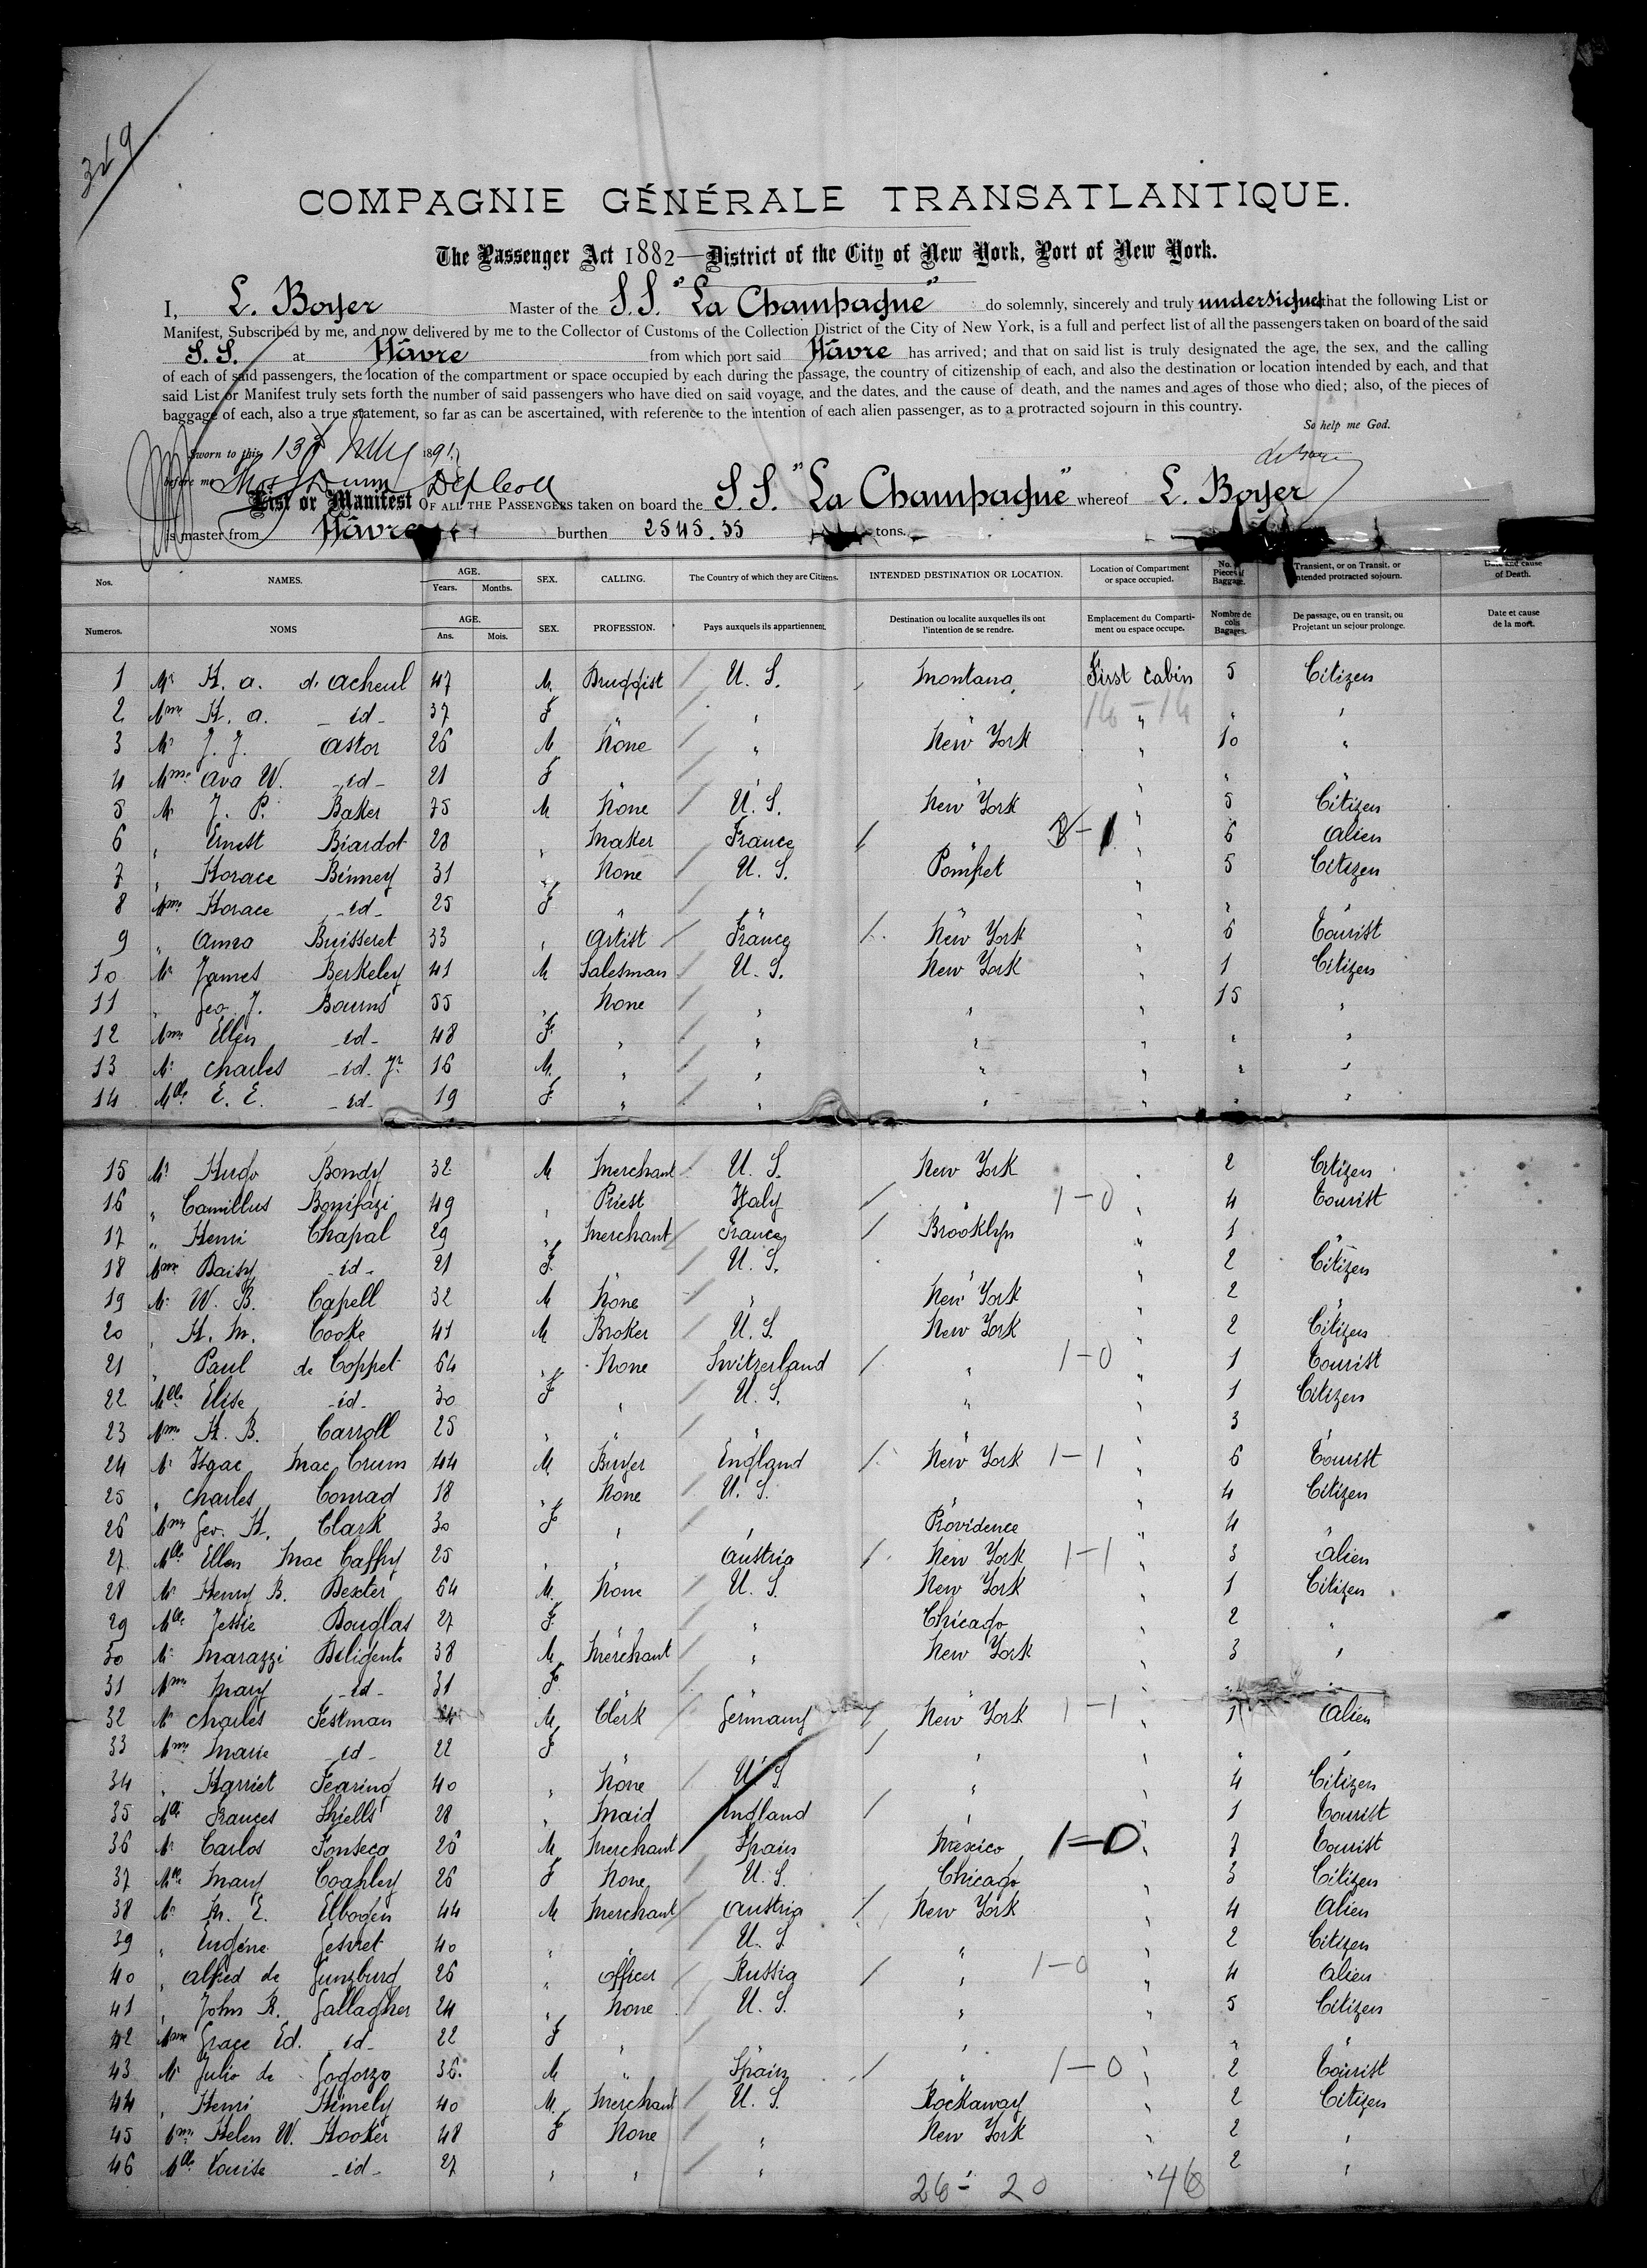 369
COMPAGNIE GÉNÉRALE TRANSATLANTIQUE.
The Passenger Act 1882—District of the City of New York, Port of New York.
I, L. Boyer Master of the S.S. "La Champagne" do solemnly, sincerely and truly undersigned that the following List or
Manifest, Subscribed by me, and now delivered by me to the Collector of Customs of the Collection District of the City of New York, is a full and perfect list of all the passengers taken on board of the said
S. S. at Hâvre from which port said Hâvre has arrived; and that on said list is truly designated the age, the sex, and the calling
of each of said passengers, the location of the compartment or space occupied by each during the passage, the country of citizenship of each, and also the destination or location intended by each, and that
said List or Manifest truly sets forth the number of said passengers who have died on said voyage, and the dates, and the cause of death, and the names and ages of those who died; also, of the pieces of
baggage of each, also a true statement, so far as can be ascertained, with reference to the intention of each alien passenger, as to a protracted sojourn in this country.
So help me God.
Sworn to this 13 1891
before me Dunn Dep Coll
List or Manifest OF ALL THE PASSENGERS taken on board the S.S. "La Champagne" whereof L. Boyer
is master from Hâvre burthen 2545.55 tons.
Nos. NAMES. AGE. Years. Months. SEX. CALLING. The Country of which they are Citizens. INTENDED DESTINATION OR LOCATION. Location of Compartment or space occupied. No. of Pieces of Baggage. Transient, or on Transit, or intended protracted sojourn. Date and cause of Death.
Numeros. NOMS AGE. Ans. Mois. SEX. PROFESSION. Pays auxquels ils appartiennent. Destination ou localite auxquelles ils ont l'intention de se rendre. Emplacement du Compartiment ou espace occupe. Nombre de colis Bagages. De passage, ou en transit, ou Projetant un sejour prolonge. Date et cause de la mort.
1 Mr H. a. d'acheul 47 M Druggist / U. S. Montana First cabin 5 Citizen
2 Mme H. a. _ id _ 37 F " / " 16 - 14 " " "
3 Mr J. J. Astor 26 M None / " New York " 10 "
4 Mme Ava W. _ id _ 21 F " / " " " " "
5 Mr J. P. Baker 35 M None / U. S. New York " 5 Citizen
6 " Ernest Biardot 28 " Maker France / " 1 " 6 Alien
7 " Horace Binney 31 " None U. S. Pomfret " 5 Citizen
8 Mme Horace _ id _ 25 F " / " " " " "
9 " Anna Buisseret 33 " Artist / France / New York " 6 Tourist
10 Mr James Berkeley 41 M Salesman / U. S. New York " 1 Citizen
11 " Geo. J. Bourns 55 " None / " " " 15 "
12 Mme Ellen _ id _ 48 F " / " " " " "
13 Mr Charles _ id. Jr 16 M " / " " " " "
14 Mlle E. E. _ id _ 19 F " / " " " " "
15 Mr Hugo Bondy 32 M Merchant / U. S. New York " 2 Citizen
16 " Camillus Bonifazi 49 " Priest Italy / " 1-0 " 4 Tourist
17 " Henri Chapal 29 " Merchant / France / Brooklyn " 1 "
18 Mme Daisy _ id _ 21 F / U. S. " " 2 Citizen
19 Mr W. B. Capell 32 M None / " New York " 2 "
20 " H. M. Cooke 41 M Broker / U. S. New York " 2 Citizen
21 " Paul de Coppet 64 " None Switzerland / " 1-0 " 1 Tourist
22 Mlle Elise _ id _ 30 F " / U. S. " " 1 Citizen
23 Mme H. B. Carroll 25 " " / " " " 3 "
24 Mr Isaac Mac Crum 44 M Buyer England / New York 1-1 " 6 Tourist
25 " Charles Conrad 18 " None / U. S. " " 4 Citizen
26 Mme Geo. H. Clark 30 F " / " Providence " 4 "
27 Mlle Ellen Mac Caffry 25 " " Austria / New York 1-1 " 3 Alien
28 Mr Henry B. Dexter 64 M None / U. S. New York " 1 Citizen
29 Mlle Jessie Douglas 27 F " " Chicago " 2 "
30 Mr Marazzi Diligenti 38 M Merchant / " New York " 3 "
31 Mme Mary _ id _ 31 F " / " " " " "
32 Mr Charles Festman M Clerk / Germany / New York 1-1 " 1 Alien
33 Mme Marie _ id _ 22 F " " / " " " "
34 " Harriet Fearing 40 " None / U. S " " 4 Citizen
35 Mlle Frances Shiells 28 " Maid England / " " 1 Tourist
36 Mr Carlos Fonseca 26 M Merchant Spain Mexico 1-0 " 7 Tourist
37 Mlle Mary Coahley 26 F None / U. S. Chicago " 3 Citizen
38 Mr M. E. Elbogen 44 M Merchant / Austria / New York " 4 Alien
39 " Eugène Gesvret 40 " " / U. S " " 2 Citizen
40 " Alfred de Gunzburg 26 " Officer / Russia / " 1-0 " 4 Alien
41 " John R. Gallagher 24 " None / U. S. " " 5 Citizen
42 Mme Grace Ed. _ id _ 22 F " / " " " " "
43 Mr Julio de Gogorza 36 M " Spain / " 1-0 " 2 Tourist
44 " Henri Himely 40 M Merchant / U. S. Rockaway " 2 Citizen
45 Mme Helen W. Hooker 48 F None / " New York " 2 "
46 Mlle Louise _ id _ 27 " " / " " " 2 "
26 - 20 46